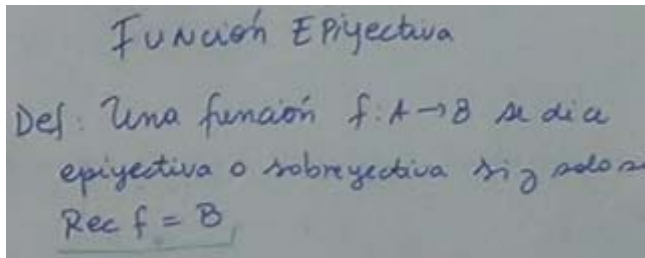 Función Epiyectiva
Def: Una función f: A → B se dice
epiyectiva o sobreyectiva si y solo si
Rec f = B